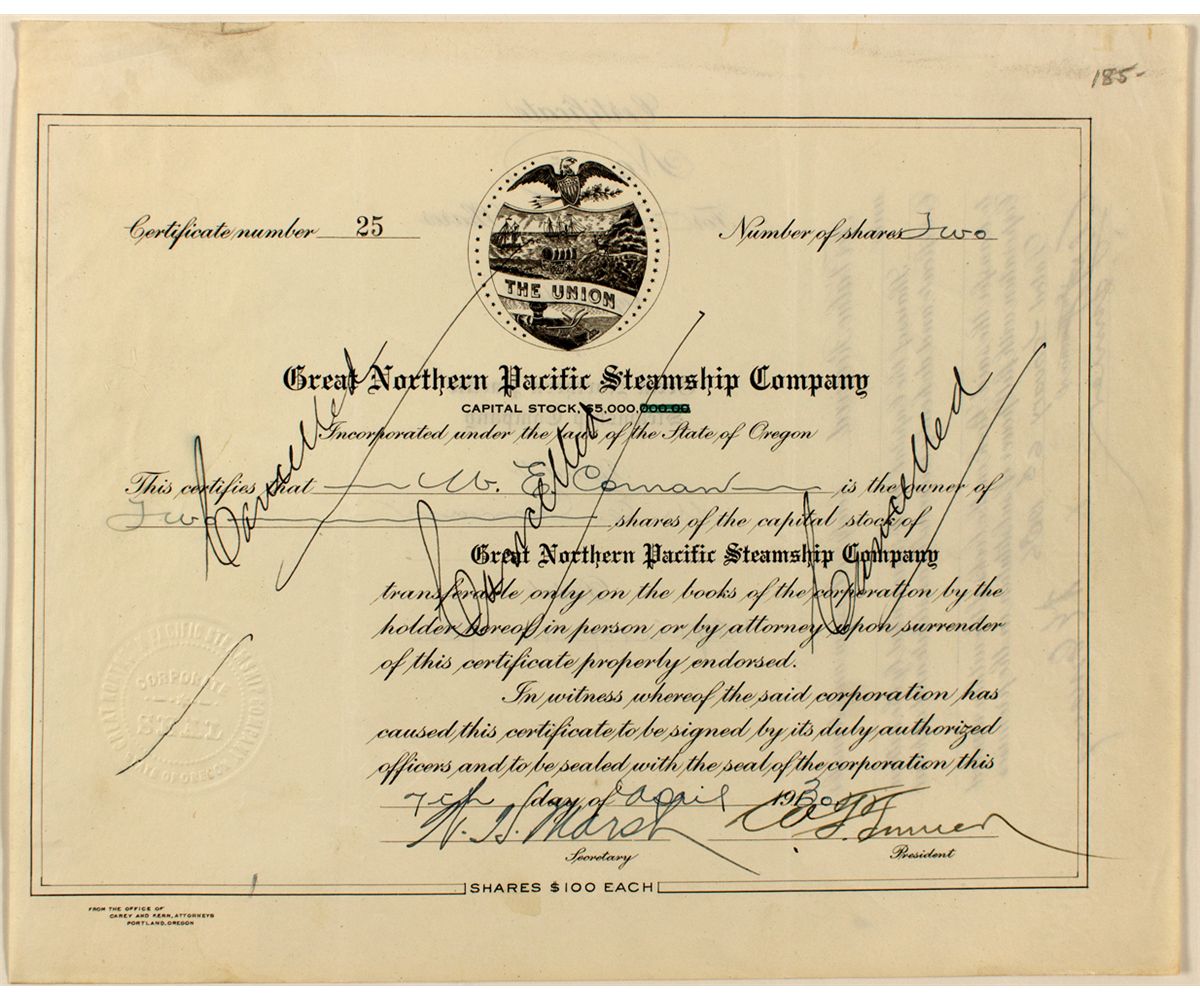 185-
Certificate number 25
Number of shares Two
THE UNION
Great Northern Pacific Steamship Company
CAPITAL STOCK, $5,000,000.00
Incorporated under the laws of the State of Oregon
This certifies that W. E. Coman is the owner of
Two shares of the capital stock of
Great Northern Pacific Steamship Company
transferable only on the books of the corporation by the
holder hereof in person or by attorney upon surrender
of this certificate properly endorsed.
In witness whereof the said corporation has
caused this certificate to be signed by its duly authorized
officers and to be sealed with the seal of the corporation this
7th day of April 1930
W. G. Marsh
Secretary
President
SHARES $100 EACH
Cancelled
Cancelled
Cancelled
CORPORATE
SEAL
OF OREGON
FROM THE OFFICE OF
CAREY AND KERR, ATTORNEYS
PORTLAND, OREGON